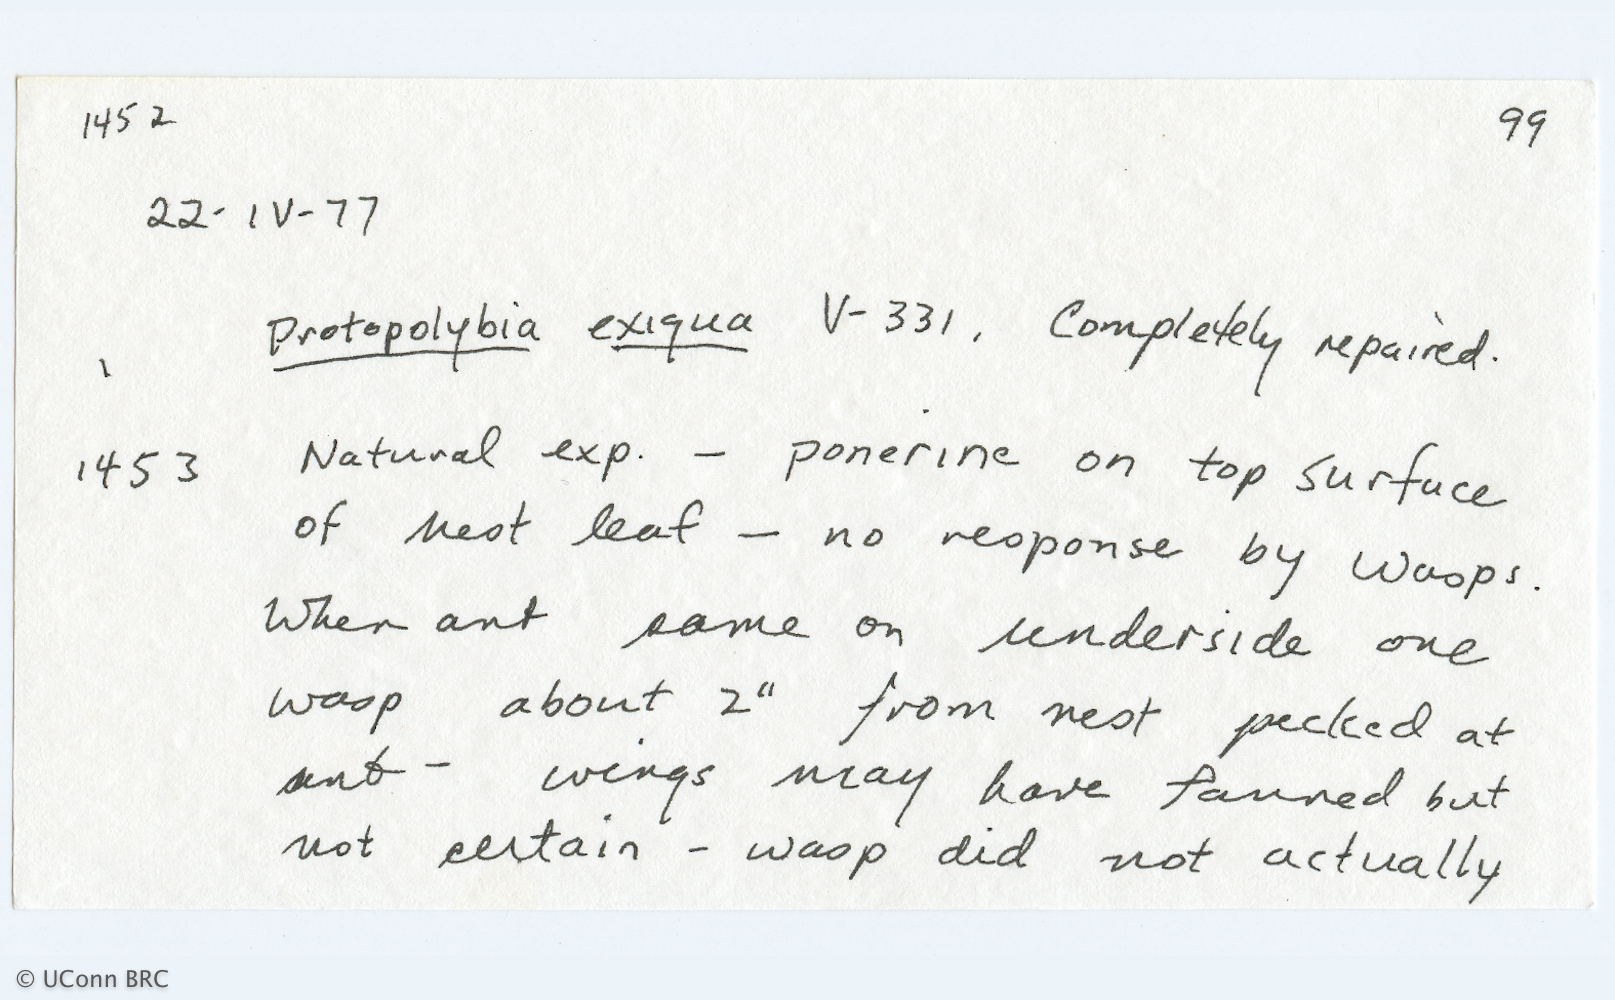 1452 99
22-IV-77
Protopolybia exiqua V-331. Completely repaired.
1453 Natural exp. - ponerine on top surface
of nest leaf - no response by wasps.
When ant came on underside one
wasp about 2" from nest pecked at
ant - wings may have fanned but
not certain - wasp did not actually
© UConn BRC